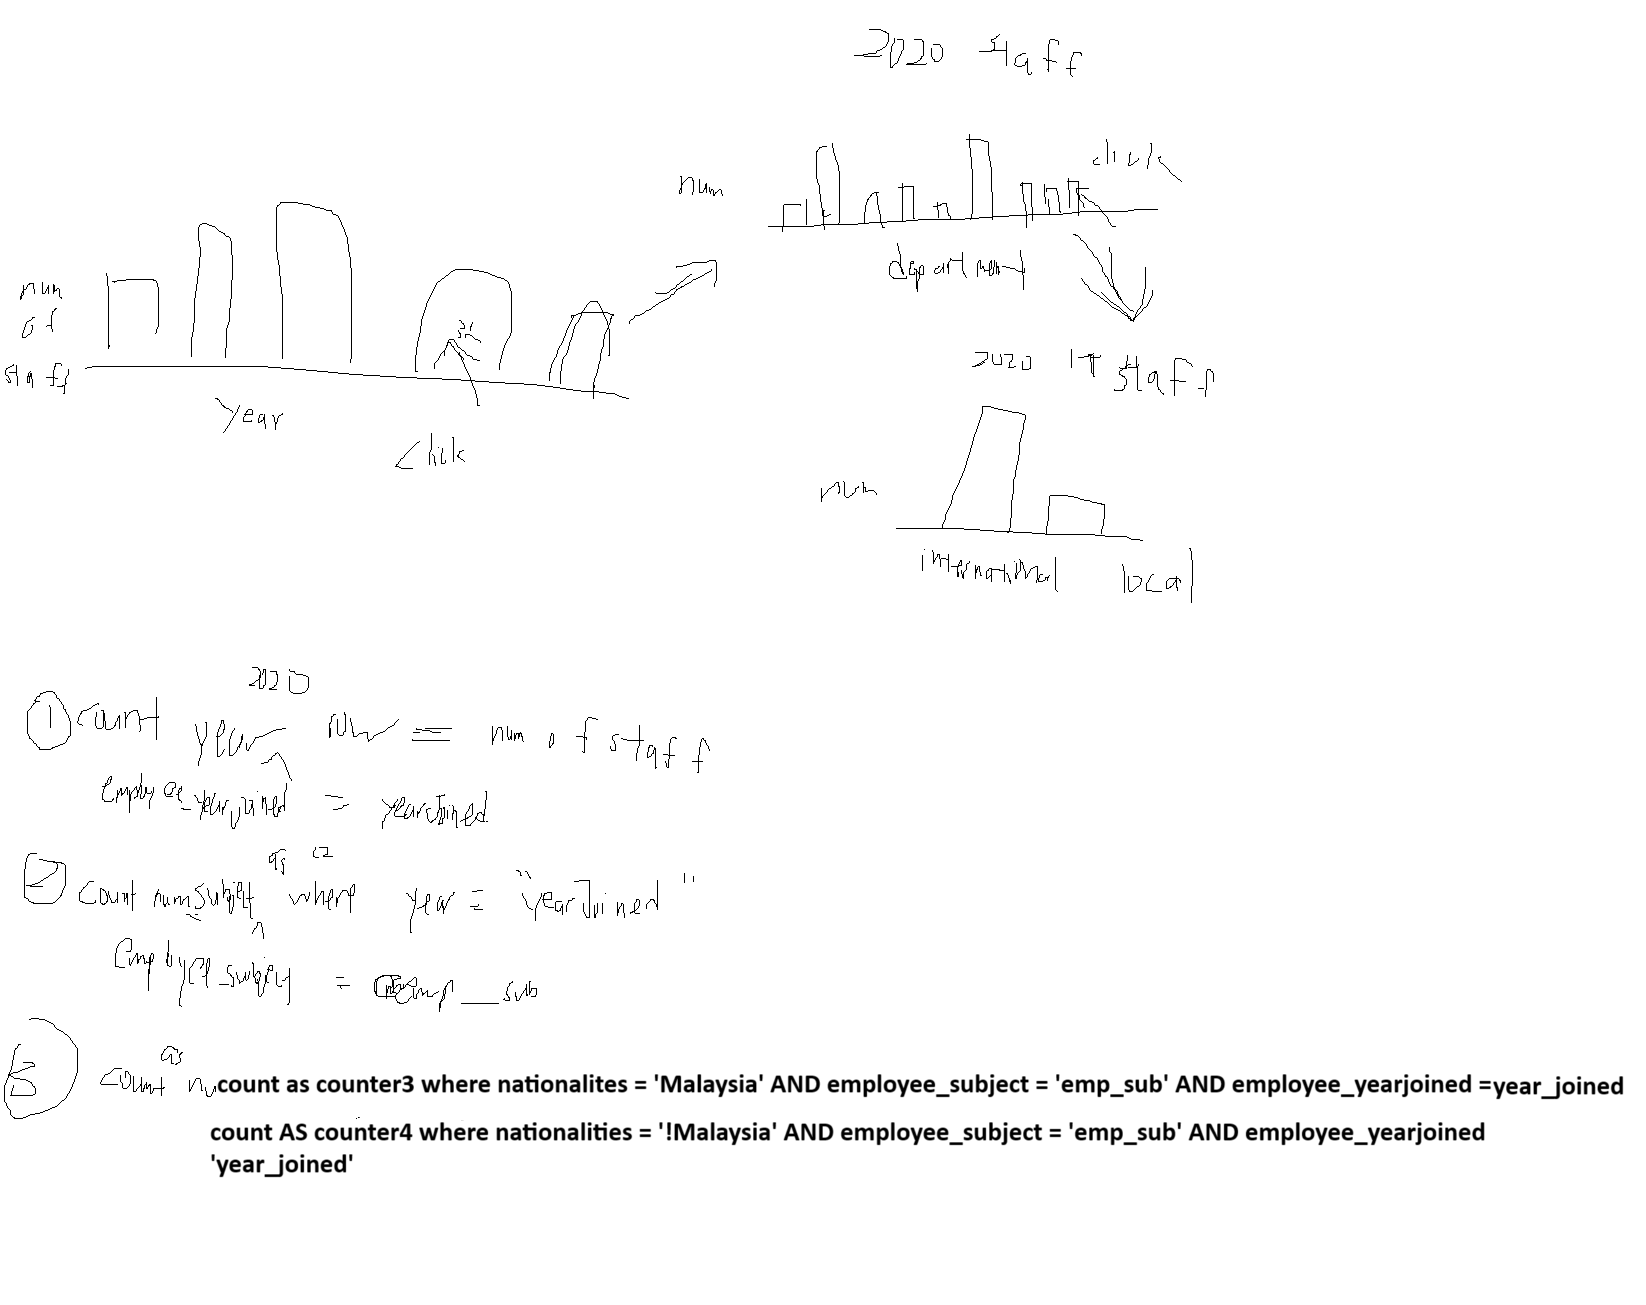 2020 staff
num
click
department
num
of
staff
year
click
2020 IT staff
num
international local
2020
1 count year row = num of staff
employee_yearjoined = yearJoined
as c2
2 count num subject where year = "yearJoined"
employee_subject = emp_sub
as
3 count nu count as counter3 where nationalites = 'Malaysia' AND employee_subject = 'emp_sub' AND employee_yearjoined =year_joined
count AS counter4 where nationalities = '!Malaysia' AND employee_subject = 'emp_sub' AND employee_yearjoined
'year_joined'